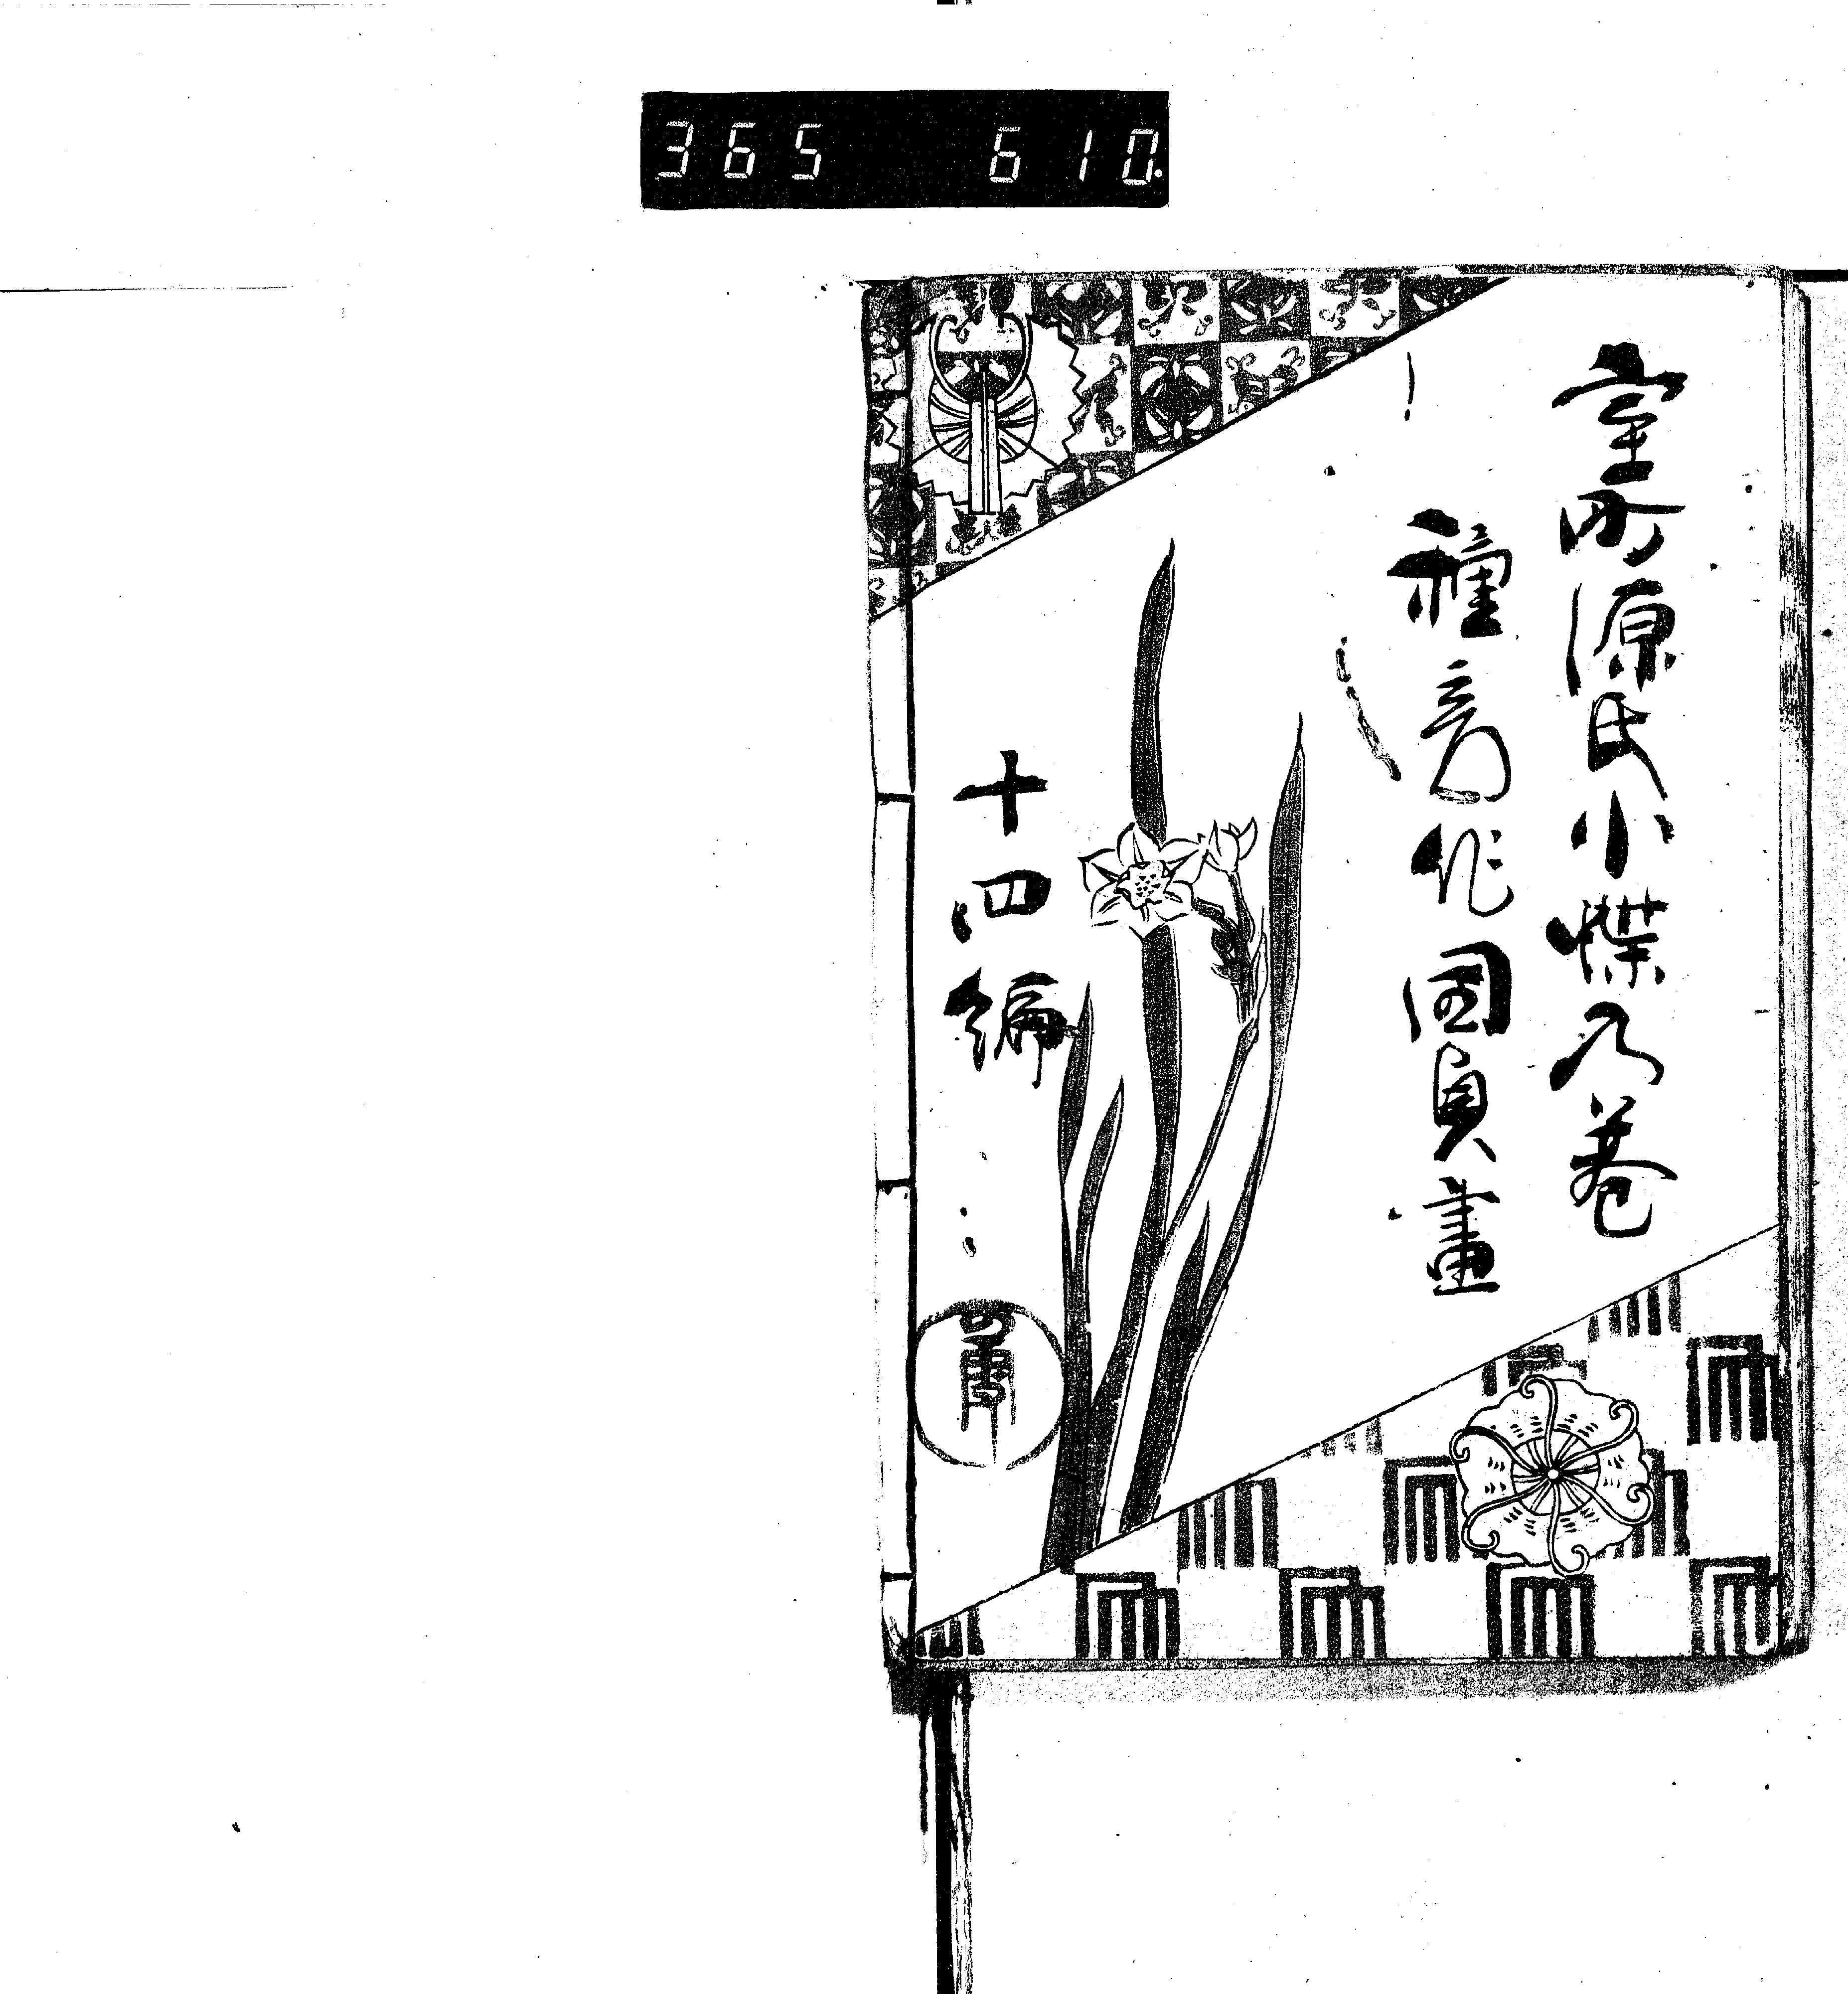 365 610.
室町源氏小蝶乃巻
種彦作国貞畫
十四編